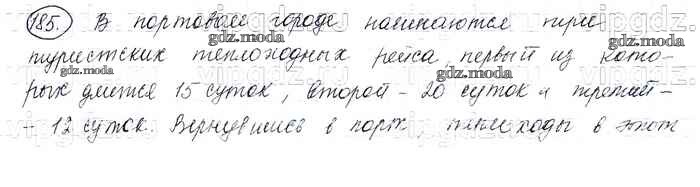 185. В портовом городе начинаются три
туристских теплоходных рейса, первый из кото-
рых длится 15 суток, второй - 20 суток и третий -
- 12 суток. Вернувшись в порт, теплоходы в этот